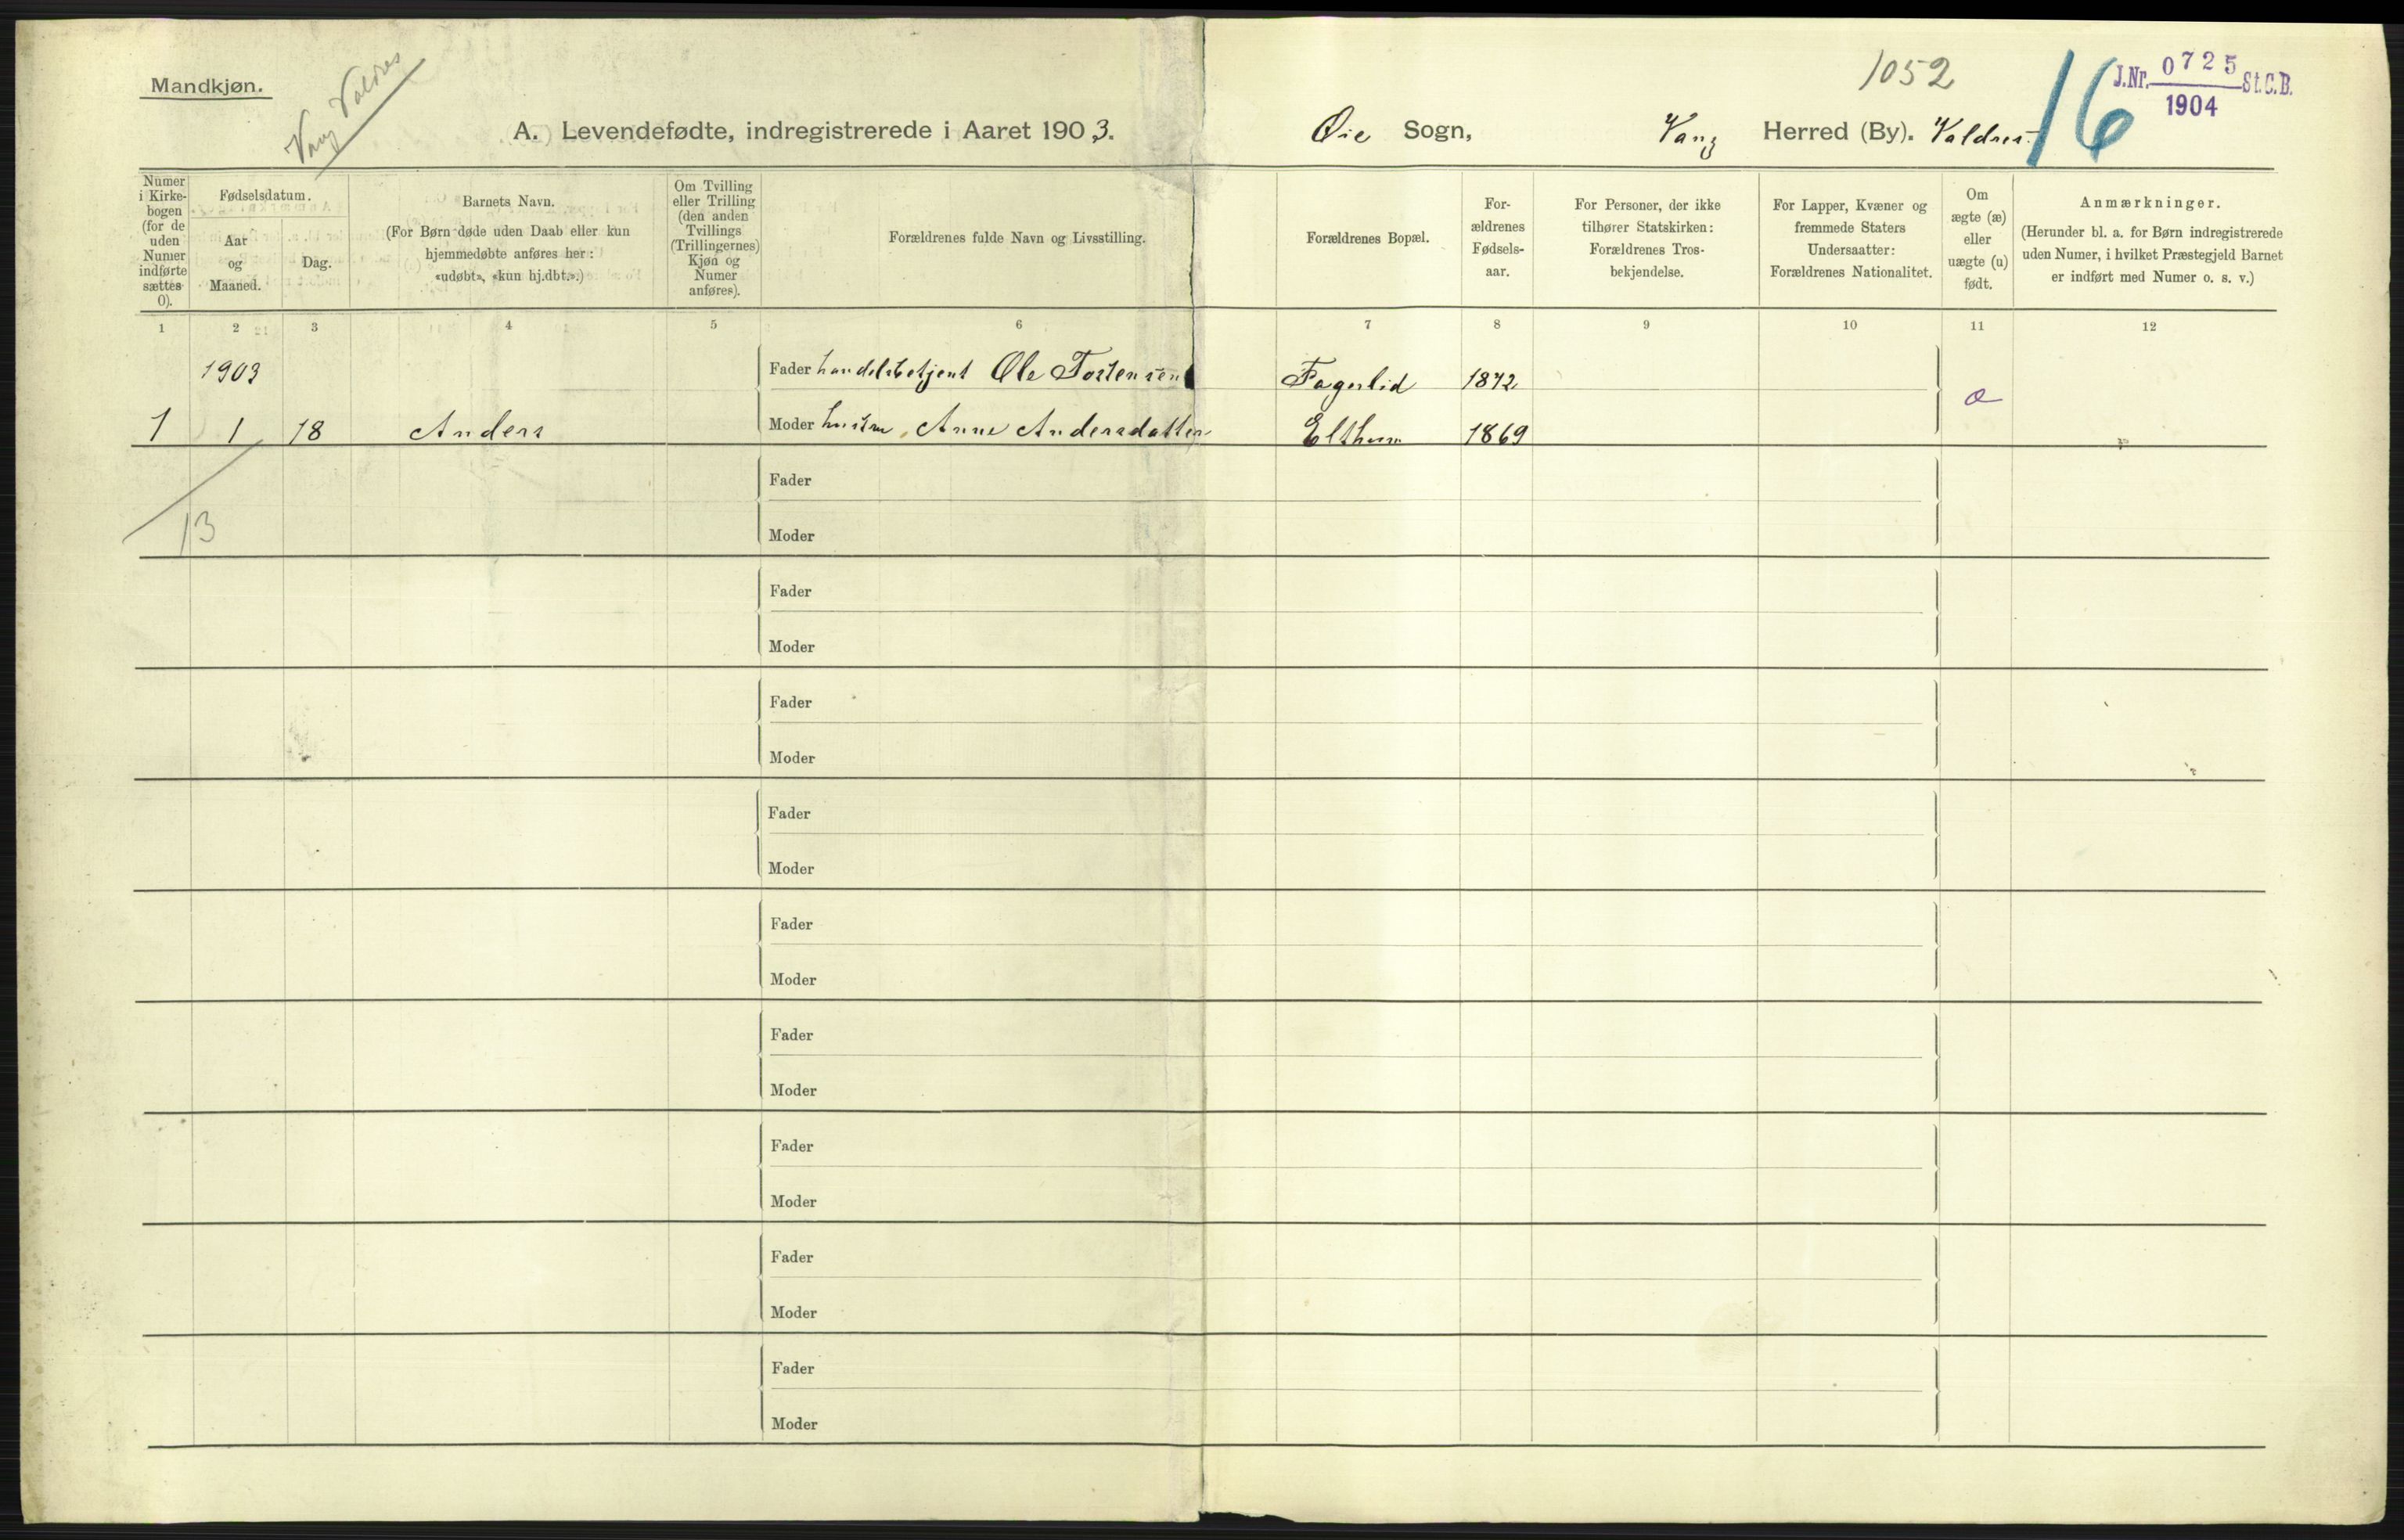 Mandkjøn.
Vang Valdres
1052
16
J.Nr. 0725 St.C.B.
1904
A. Levendefødte, indregistrerede i Aaret 1903.
Øie Sogn,
Vang Herred (By). Valdres.
Numer
i Kirke-
bogen
(for de
uden
Numer
indførte
sættes
0).
Fødselsdatum.
Aar
og
Maaned.
Dag.
Barnets Navn.
(For Børn døde uden Daab eller kun
hjemmedøbte anføres her:
«udøbt», «kun hj.dbt.».)
Om Tvilling
eller Trilling
(den anden
Tvillings
(Trillingernes)
Kjøn og
Numer
anføres).
Forældrenes fulde Navn og Livsstilling.
Forældrenes Bopæl.
For-
ældrenes
Fødsels-
aar.
For Personer, der ikke
tilhører Statskirken:
Forældrenes Tros-
bekjendelse.
For Lapper, Kvæner og
fremmede Staters
Undersaatter:
Forældrenes Nationalitet.
Om
ægte (æ)
eller
uægte (u)
født.
Anmærkninger.
(Herunder bl. a. for Børn indregistrerede
uden Numer, i hvilket Præstegjeld Barnet
er indført med Numer o. s. v.)
1 2 3 4 5 6 7 8 9 10 11 12
1903 Fader handelsbetjent Ole Tostensen Fagerlid 1872
æ
1 1 18 Anders Moder hustru Anne Andersdatter 1869
Fader
13 Moder
Fader
Moder
Fader
Moder
Fader
Moder
Fader
Moder
Fader
Moder
Fader
Moder
Fader
Moder
Fader
Moder